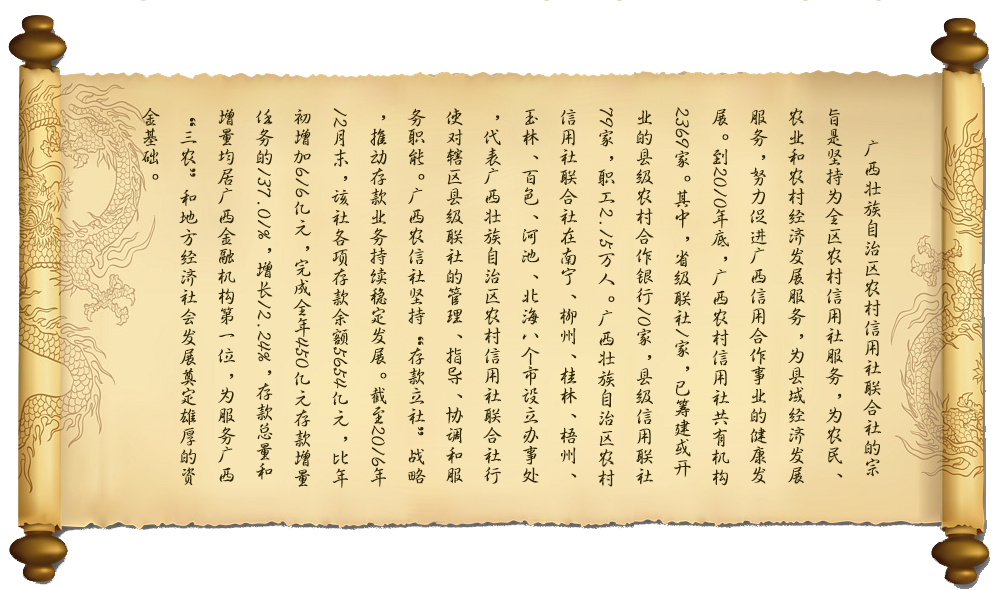 广西壮族自治区农村信用社联合社的宗
旨是坚持为全区农村信用社服务，为农民、
农业和农村经济发展服务，为县域经济发展
服务，努力促进广西信用合作事业的健康发
展。到2010年底，广西农村信用社共有机构
2369家。其中，省级联社1家，已筹建或开
业的县级农村合作银行10家，县级信用联社
79家，职工2.15万人。广西壮族自治区农村
信用社联合社在南宁、柳州、桂林、梧州、
玉林、百色、河池、北海八个市设立办事处
，代表广西壮族自治区农村信用社联合社行
使对辖区县级联社的管理、指导、协调和服
务职能。广西农信社坚持“存款立社”战略
，推动存款业务持续稳定发展。截至2016年
12月末，该社各项存款余额5654亿元，比年
初增加616亿元，完成全年450亿元存款增量
任务的137.01%，增长12.24%，存款总量和
增量均居广西金融机构第一位，为服务广西
“三农”和地方经济社会发展奠定雄厚的资
金基础。